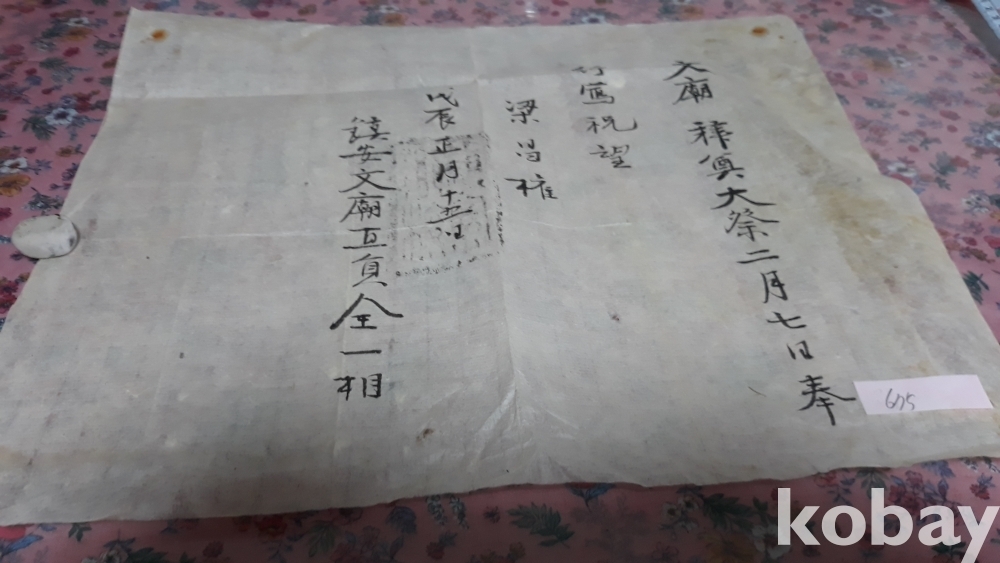 文廟 釋奠大祭二月七日奉
行寫祝望
梁昌權
戊辰正月十五日
鎮安文廟直員金一相
675
kobay